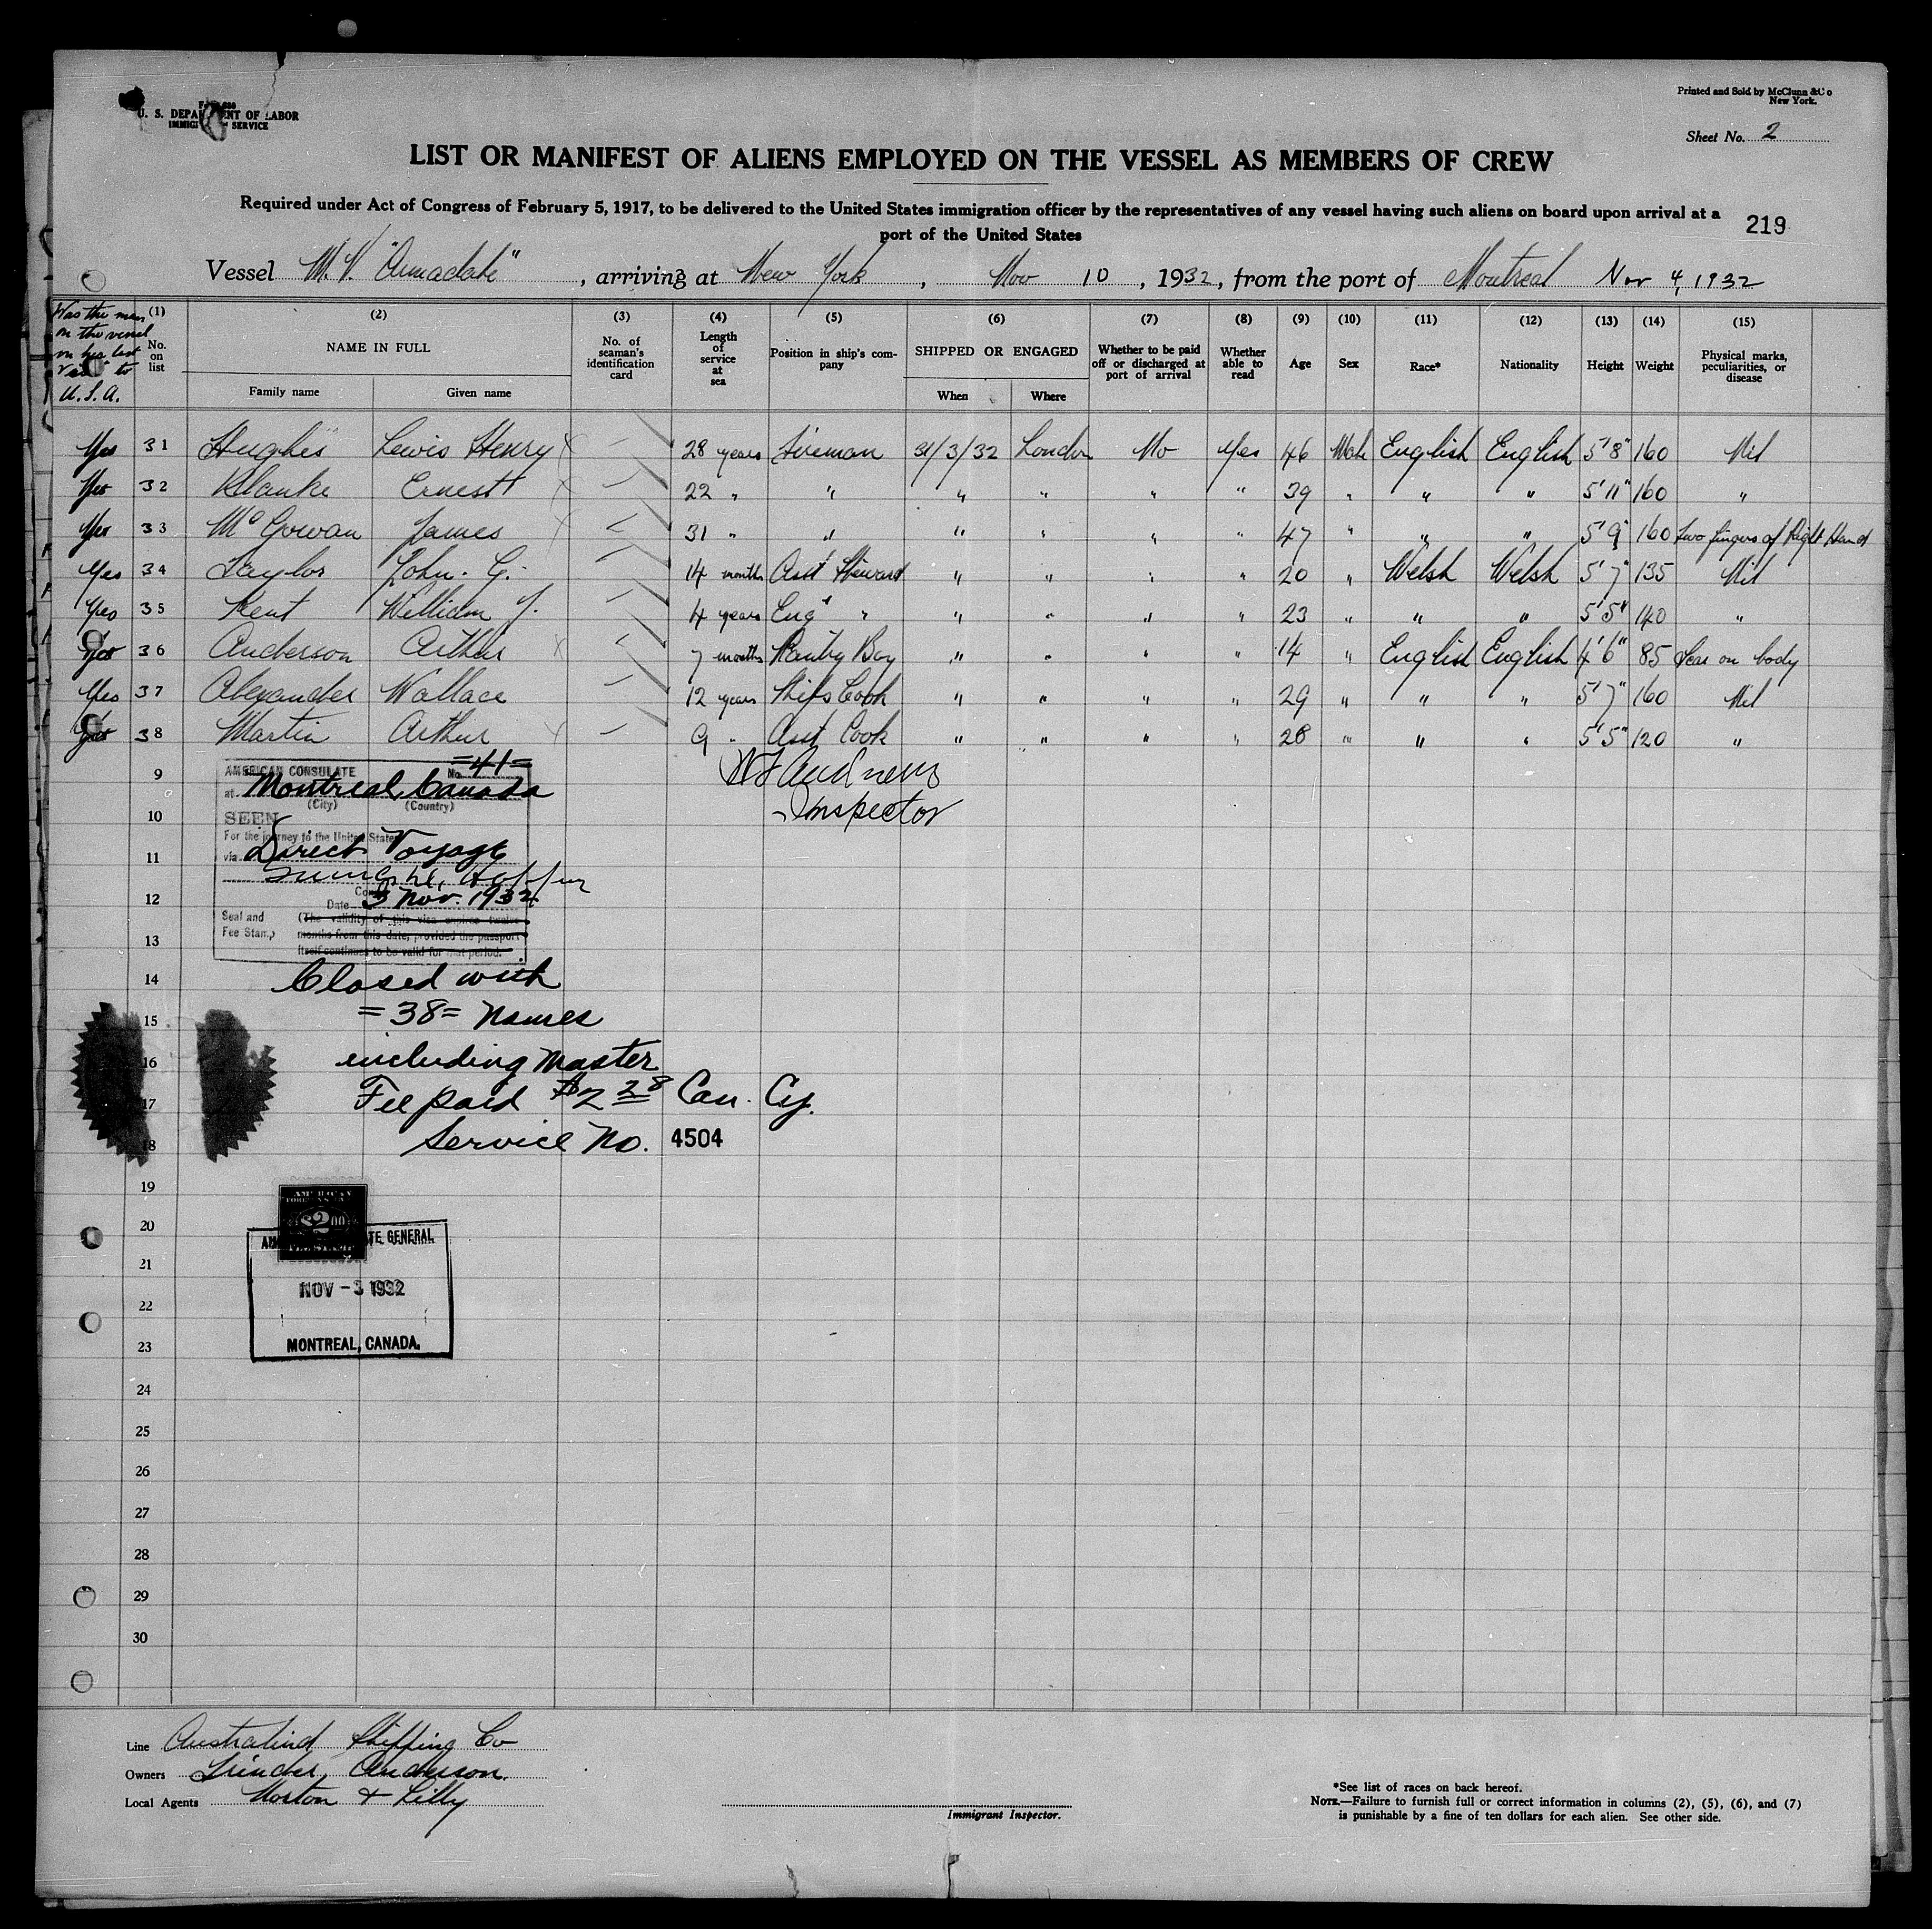 U. S. DEPARTMENT OF LABOR
IMMIGRATION SERVICE
Printed and Sold by McClunn & Co
New York.
Sheet No. 2
LIST OR MANIFEST OF ALIENS EMPLOYED ON THE VESSEL AS MEMBERS OF CREW
Required under Act of Congress of February 5, 1917, to be delivered to the United States immigration officer by the representatives of any vessel having such aliens on board upon arrival at a
port of the United States
219
Vessel M.V. , arriving at New York, Nov 10, 1932, from the port of Montreal Nov 4, 1932
Was the man on the vessel on his last visit to U.S.A.
(1) No. on list
(2) NAME IN FULL Family name Given name
(3) No. of seaman's identification card
(4) Length of service at sea
(5) Position in ship's company
(6) SHIPPED OR ENGAGED When Where
(7) Whether to be paid off or discharged at port of arrival
(8) Whether able to read
(9) Age
(10) Sex
(11) Race*
(12) Nationality
(13) Height
(14) Weight
(15) Physical marks, peculiarities, or disease
Yes 31 Hughes Lewis Henry x — 28 years Fireman 31/3/32 London No Yes 46 Male English English 5'8" 160 Nil
Yes 32 Klanke Ernest x — 22 " " " " " " 39 " " " 5'11" 160 "
Yes 33 McGowan James x 31 " " " " " " 47 " " " 5'9" 160 two fingers of Right Hand
Yes 34 Taylor John. G. — 14 months Asst Steward " " " " 20 " Welsh Welsh 5'7" 135 Nil
Yes 35 Kent William J. — 4 years Eng " " " " " " 23 " " " 5'5" 140 "
Yes 36 Anderson Arthur x 7 months Pantry Boy " " " " 14 " English English 4'6" 85 Scar on body
Yes 37 Alexander Wallace — 12 years Ship's Cook " " " " 29 " " " 5'7" 160 Nil
Yes 38 Martin Arthur x — 9 " Asst Cook " " " " 28 " " " 5'5" 120 "
W F Andrews
Inspector
AMERICAN CONSULATE No. =41=
at Montreal, Canada
(City) (Country)
SEEN
For the journey to the United States
via Direct Voyage
Date 3 Nov. 1932
Seal and Fee Stamp
(The validity of this visa expires twelve
months from this date, provided the passport
itself continues to be valid for that period.
9
10
11
12
13
14
15
16
17
18
19
20
21
22
23
24
25
26
27
28
29
30
Closed with
=38= names
including master
Fee paid $2 28 Can. Cy.
Service No. 4504
AMERICAN
$2.00
NOV - 3 1932
MONTREAL, CANADA.
Line Australind Shipping Co
Owners Trinder, Anderson.
Local Agents Norton & Lilly
Immigrant Inspector.
*See list of races on back hereof.
NOTE.—Failure to furnish full or correct information in columns (2), (5), (6), and (7)
is punishable by a fine of ten dollars for each alien. See other side.